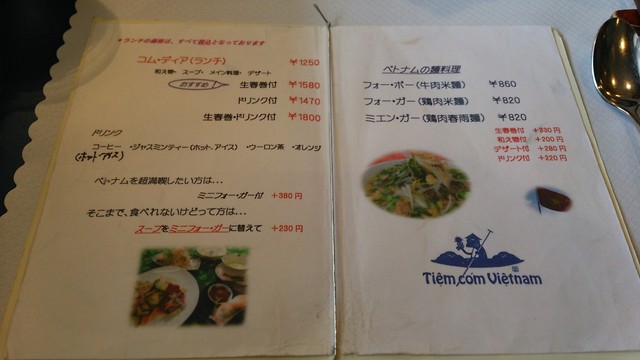 *ランチの価格は、すべて税込となっております
コム・ディア(ランチ) ¥1250
和え物・スープ・メイン料理・デザート
おすすめ! 生春巻付 ¥1580
ドリンク付 ¥1470
生春巻・ドリンク付 ¥1800
ドリンク
コーヒー ・ジャスミンティー(ホット、アイス) ・ウーロン茶 ・オレンジ
(ホット・アイス)
ベトナムを超満喫したい方は…
ミニフォー・ガー付 +380円
そこまで、食べれないけどって方は…
スープをミニフォー・ガーに替えて +230円
ベトナムの麺料理
フォー・ボー(牛肉米麺) ¥860
フォー・ガー(鶏肉米麺) ¥820
ミエン・ガー(鶏肉春雨麺) ¥820
生春巻付 +330円
和え物付 +200円
デザート付 +280円
ドリンク付 +220円
Tiệm cơm Việtnam